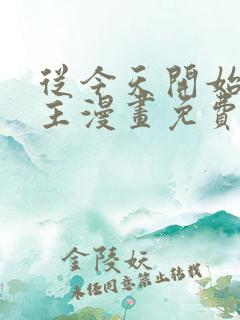 從今天開始
王漫畫免費
金陵妖
未經同意禁止轉載